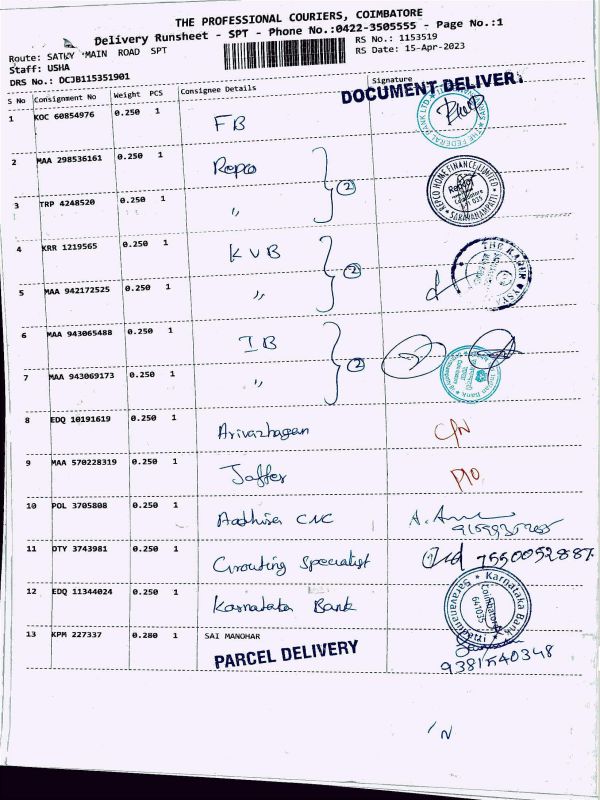 THE PROFESSIONAL COURIERS, COIMBATORE
Delivery Runsheet - SPT - Phone No.:0422-3505555 - Page No.:1
Route: SATHY MAIN ROAD SPT
RS No.: 1153519
Staff: USHA
RS Date: 15-Apr-2023
DRS No.: DCJB115351901
S No Consignment No Weight PCS Consignee Details Signature
DOCUMENT DELIVERY
1 KOC 60854976 0.250 1 FB
THE FEDERAL BANK LTD
2 MAA 298536161 0.250 1 Repco
2
REPCO HOME FINANCE LIMITED
Repco
Coimbatore
SARAVANAMPATTI
3 TRP 4248520 0.250 1 〃
4 KRR 1219565 0.250 1 KVB
2
THE KARUR VYSYA
5 MAA 942172525 0.250 1 〃
6 MAA 943065488 0.250 1 IB
2
7 MAA 943069173 0.250 1 〃
Indian Bank
8 EDQ 10191619 0.250 1 Arivazhagan C/N
9 MAA 570228319 0.250 1 Jaffer P/O
10 POL 3705808 0.250 1 Aadhira CNC
11 OTY 3743981 0.250 1 Grouting Specialist 7550052887
12 EDQ 11344024 0.250 1 Karnataka Bank
Karnataka Bank
Coimbatore
641035
Saravanampatti
13 KPM 227337 0.280 1 SAI MANOHAR
PARCEL DELIVERY
9381540348